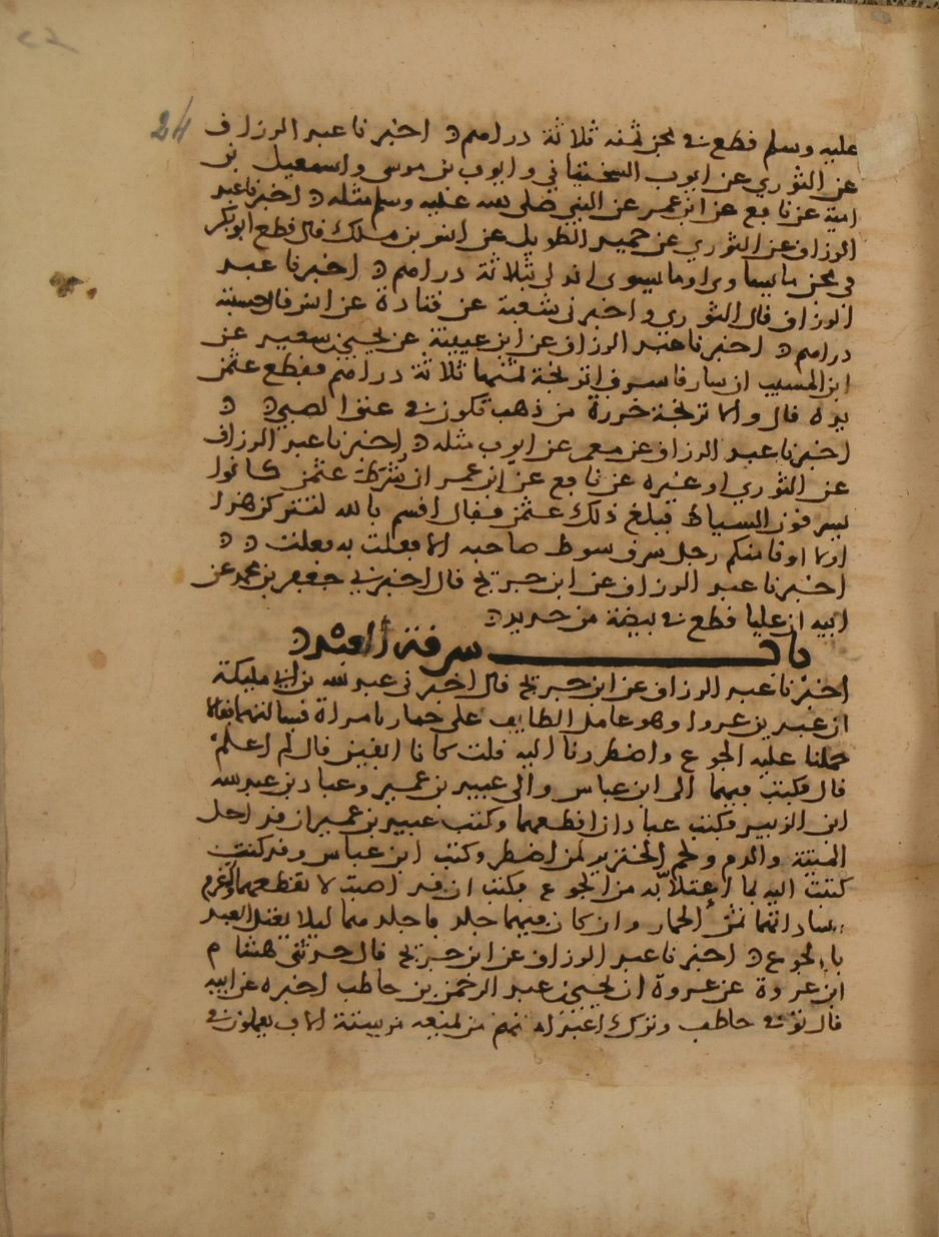 24
عليه وسلم قطع في مجن ثمنه ثلاثة دراهم اخبرنا عبد الرزاق
عن الثوري عن ايوب السختياني و ايوب بن موسى واسمعيل بن
امية عن نافع عن ابن عمر عن النبي صلى الله عليه وسلم مثله اخبرنا عبد
الرزاق عن الثوري عن حميد الطويل عن انس بن ملك قال قطع ابو بكر
في مجن ما يساوي او ما يسوى انه لي بثلاثة دراهم اخبرنا عبد
الرزاق قال الثوري واخبرني شعبة عن قتادة عن انس قال خمسة
دراهم اخبرنا عبد الرزاق عن ابن عيينة عن يحيى بن سعيد عن
ابن المسيب ان سارقا سرق اترنجة ثمنها ثلاثة دراهم فقطع عثمن
يده قال والاترنجة خرزة من ذهب تكون في عنق الصبي
اخبرنا عبد الرزاق عن معمر عن ايوب مثله اخبرنا عبد الرزاق
عن الثوري او غيره عن نافع عن ابن عمر ان شرط عثمن كانوا
يسرقون السياط فبلغ ذلك عثمن فقال اقسم بالله لتتركن هذا
او لا اوتا منكم رجل سرق سوط صاحبه الا فعلت به وفعلت
اخبرنا عبد الرزاق عن ابن جريج قال اخبرني جعفر بن محمد عن
ابيه ان عليا قطع في بيضة من حديد
باب سرقة العبد
اخبرنا عبد الرزاق عن ابن جريج قال اخبرني عبد الله بن ابي مليكة
ان عبد بن عروا وهو عامل الطايف على حمار بامراة فسالتهما فقالا
حملنا عليه الجوع واضطررنا اليه قلت كانا ابقين قال لم اعلم
قال فكتب فيهما الى ابن عباس والى عبيد بن عمير وعباد بن عبد الله
ابن الزبير فكتب عباد ان اقطعهما وكتب عبيد بن عمير ان قد احل
الميتة والدم ولحم الخنزير لمن اضطر وكتب ابن عباس وقد كنت
كتبت اليه بما اعتلا به من الجوع فكتب ان قد اصبت لا تقطعهما وغرم
سادتهما ثمن الحمار وان كان فيهما جلد فاجلدهما ليلا يعتل العبد
بالجوع اخبرنا عبد الرزاق عن ابن جريج قال حدثني هشام
ابن عروة عن عروة ان يحيى بن عبد الرحمن بن حاطب اخبره عن ابيه
قال توفي حاطب وترك اعبدا له منهم من يمنعه من ستة الاف يعملون في